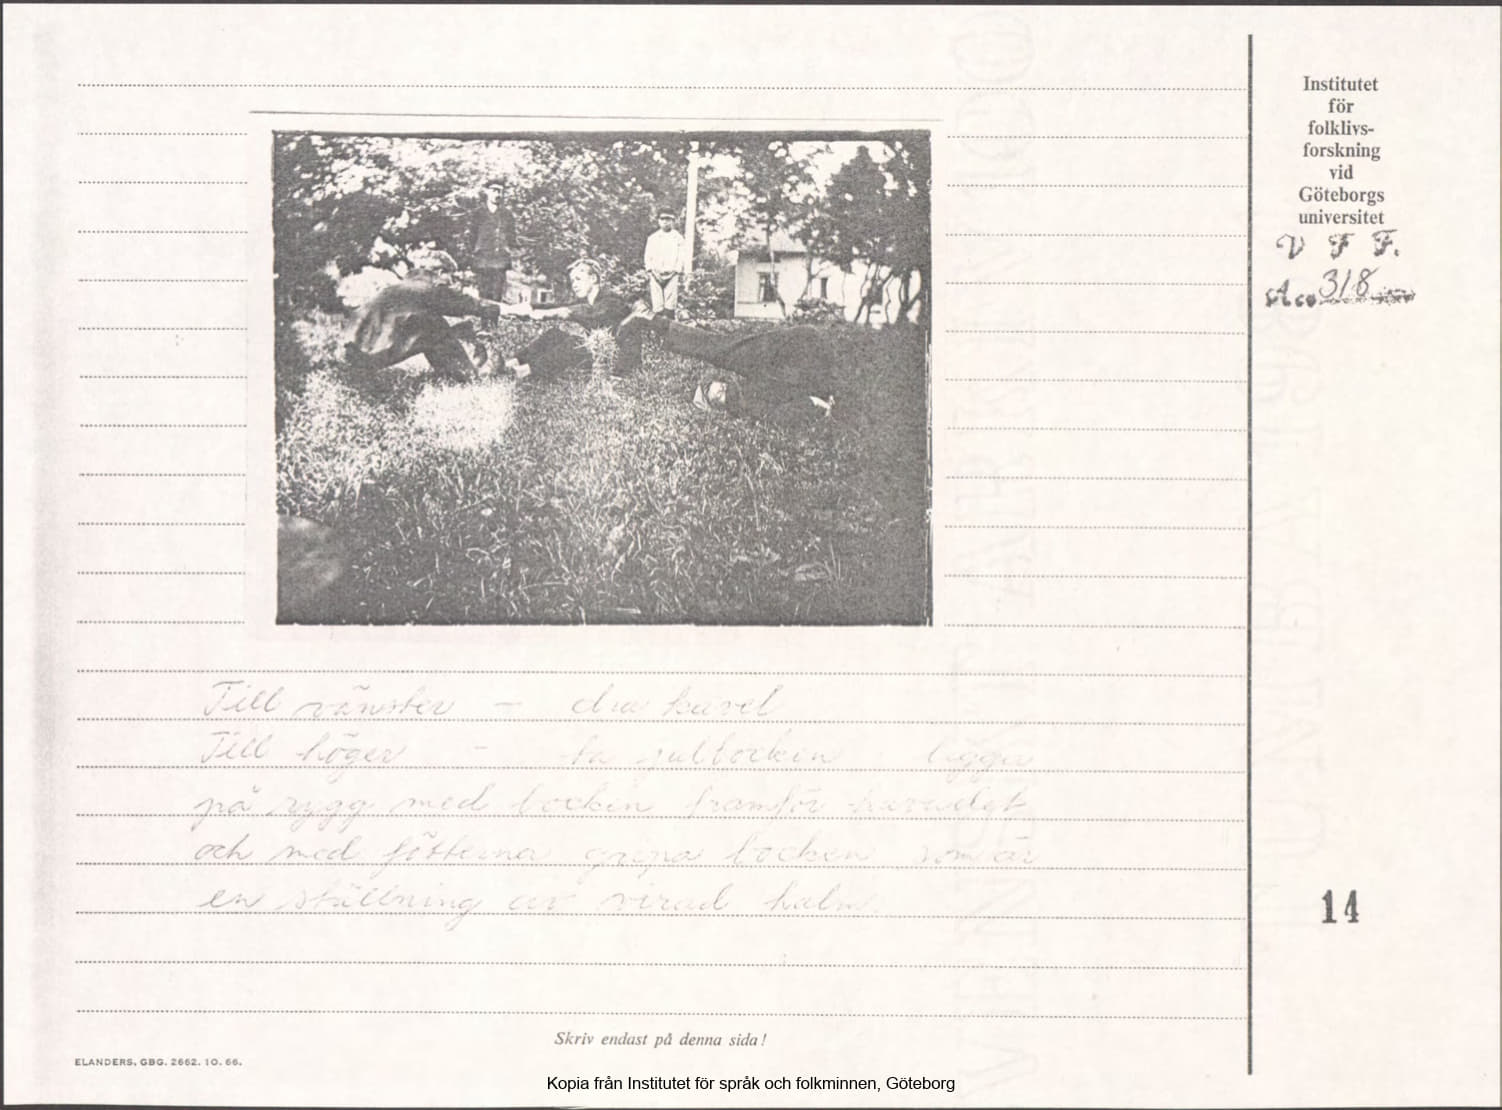 Institutet
för
folklivs-
forskning
vid
Göteborgs
universitet
V F F.
Acc 318
Till vänster - dra kavel
Till höger - ta julbocken ligga
på rygg med bocken framför huvudet
och med fötterna gripa bocken som är
en ställning av virad halm.
14
Skriv endast på denna sida!
ELANDERS, GBG. 2662. 10. 66.
Kopia från Institutet för språk och folkminnen, Göteborg